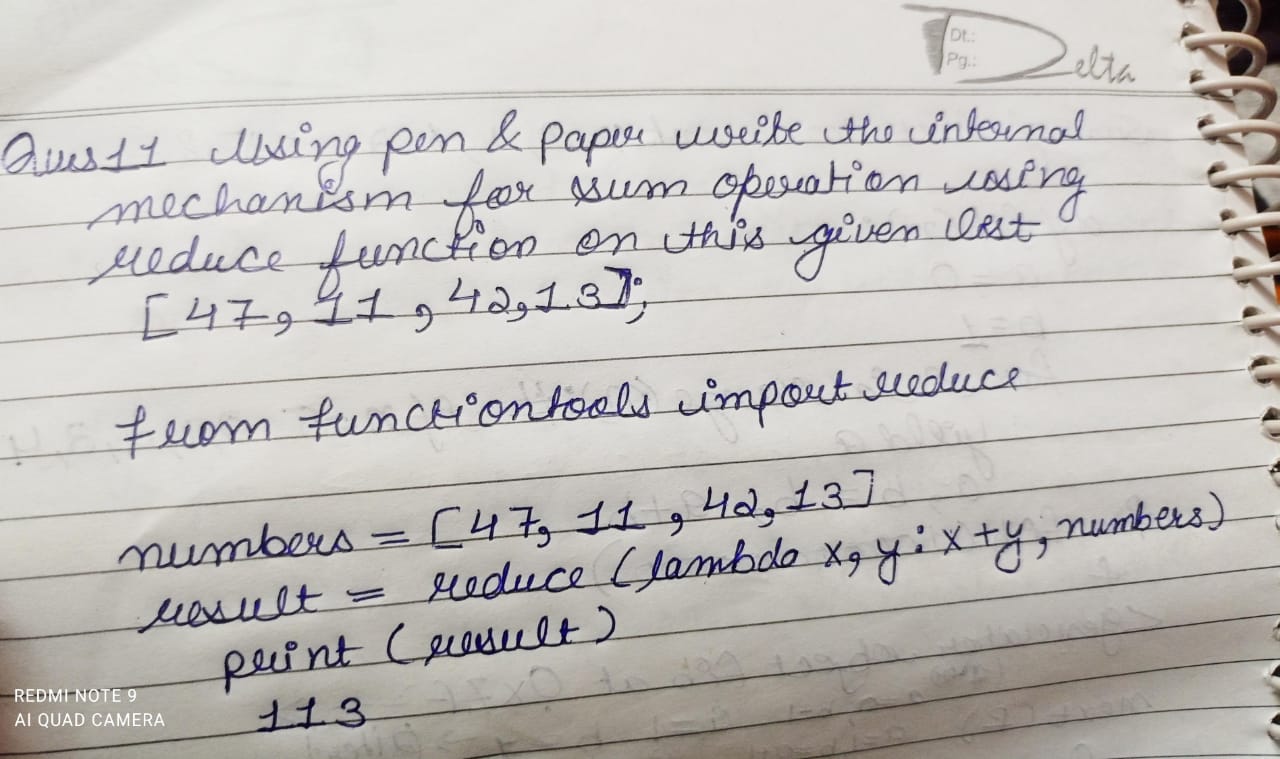 Dt.:
Pg.:
Delta
Ques11 Using pen & paper write the internal
mechanism for sum operation using
reduce function on this given list
[47, 11, 42, 13];
from functiontools import reduce
numbers = [47, 11, 42, 13]
result = reduce (lambda x, y: x+y, numbers)
print (result)
113
REDMI NOTE 9
AI QUAD CAMERA